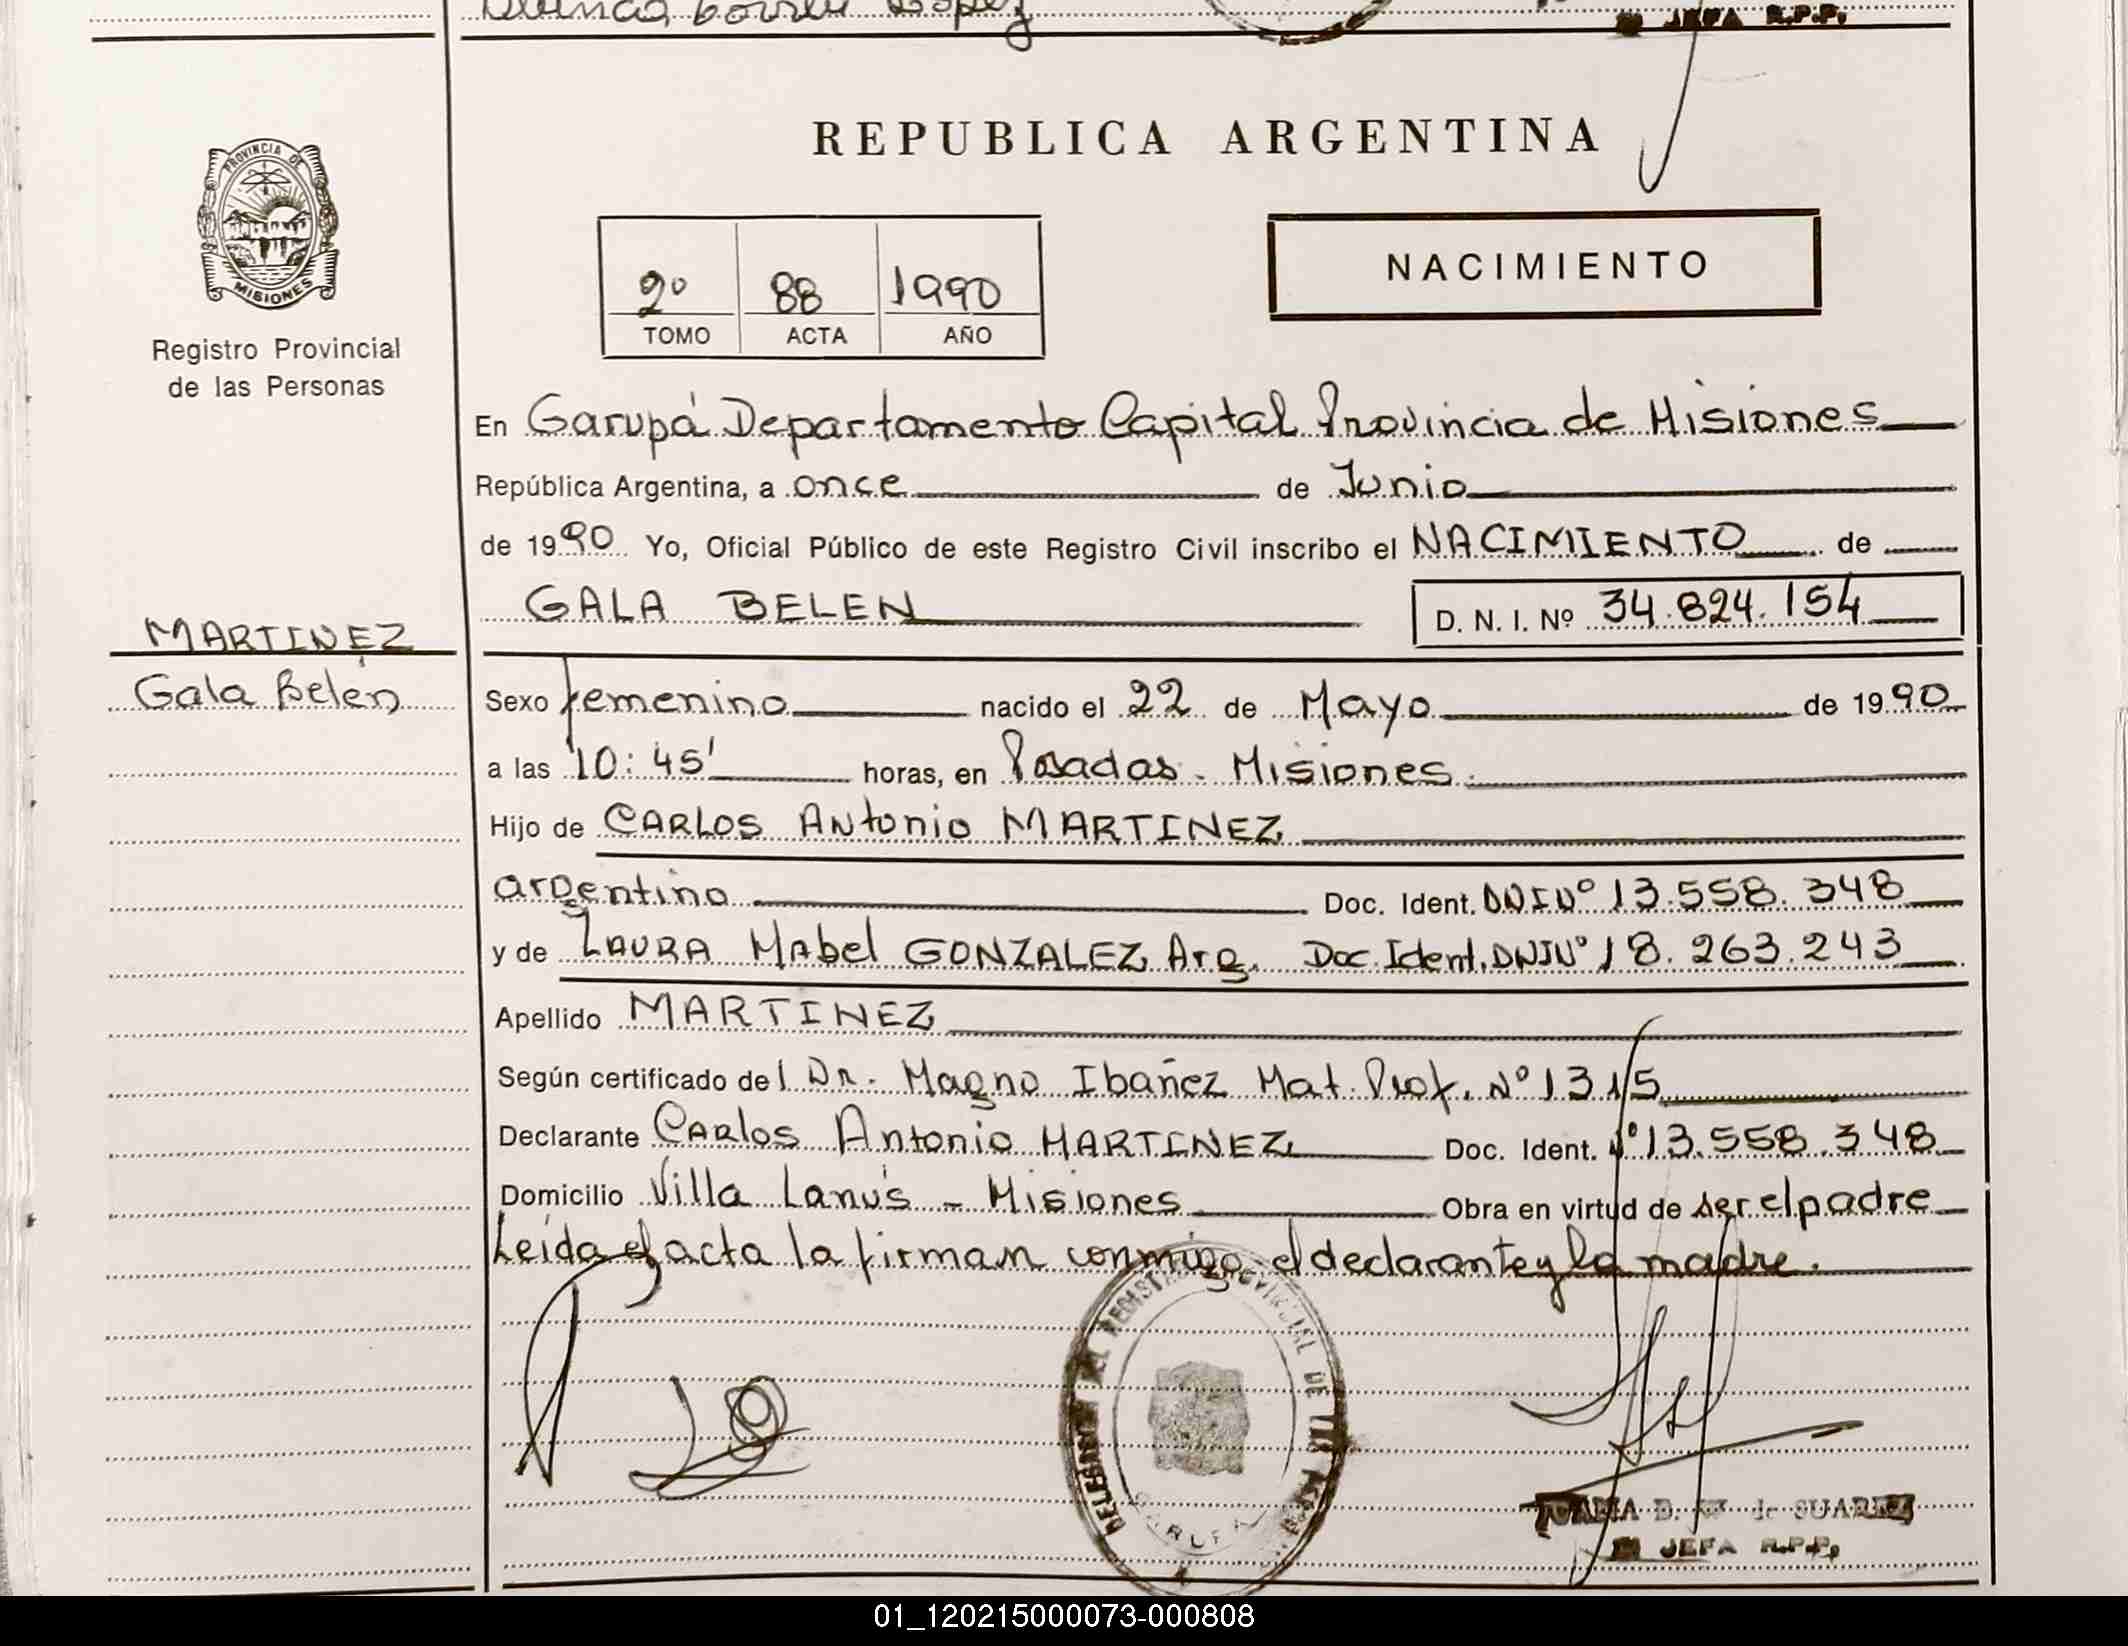 JEFA R.P.P.
REPUBLICA ARGENTINA
PROVINCIA DE
MISIONES
Registro Provincial
de las Personas
2º 88 1990
TOMO ACTA AÑO
NACIMIENTO
En Garupá Departamento Capital Provincia de Misiones
República Argentina, a once de Junio
de 1990 Yo, Oficial Público de este Registro Civil inscribo el NACIMIENTO de
GALA BELEN D. N. I. Nº 34.824.154
MARTINEZ
Gala Belén
Sexo femenino nacido el 22 de Mayo de 1990
a las 10:45' horas, en Posadas - Misiones.
Hijo de CARLOS Antonio MARTINEZ
argentino Doc. Ident. DNI Nº 13.558.348
y de LAURA Mabel GONZALEZ Arg. Doc. Ident. DNI Nº 18.263.243
Apellido MARTINEZ
Según certificado del Dr. Magno Ibañez Mat. Prof. Nº 1315
Declarante CARLOS Antonio MARTINEZ Doc. Ident. Nº 13.558.348
Domicilio Villa Lanús - Misiones Obra en virtud de ser el padre
Leída el acta la firman conmigo el declarante y la madre.
REGISTRO PROVINCIAL DE LAS
JUANA B. de SUAREZ
JEFA R.P.P.
01_120215000073-000808